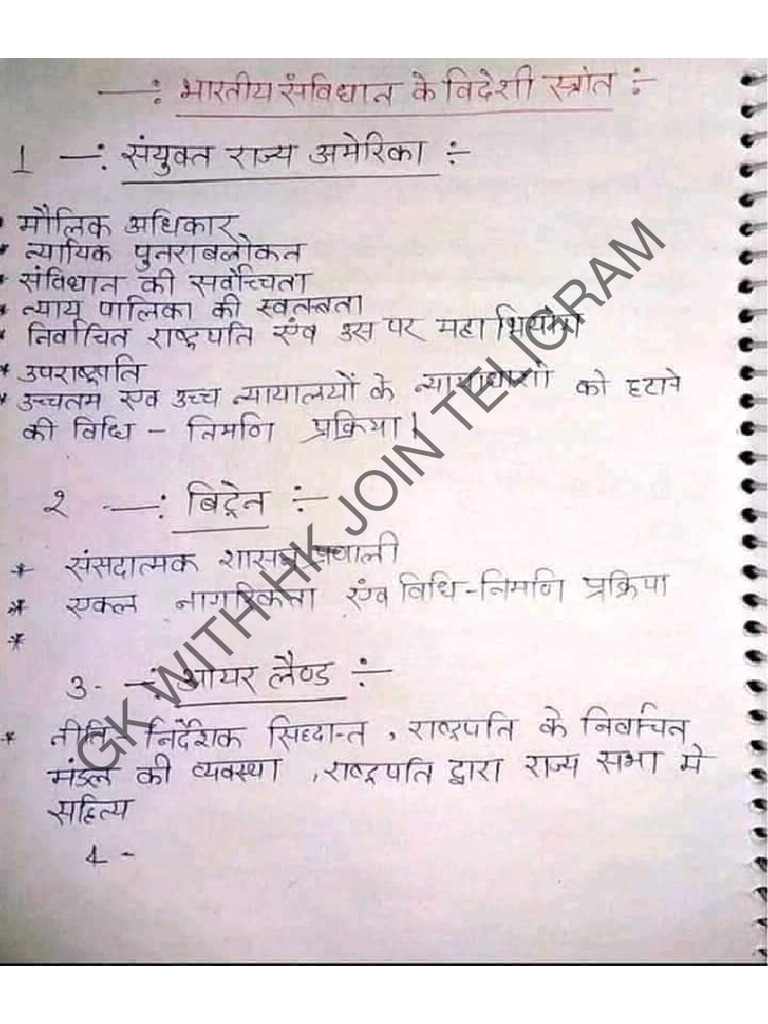 —: भारतीय संविधान के विदेशी स्त्रोत :-
1 —: संयुक्त राज्य अमेरिका :-
• मौलिक अधिकार
* न्यायिक पुनराबलोकन
* संविधान की सर्वोच्चिता
* न्याय पालिका की स्वतन्त्रता
* निर्वाचित राष्ट्रपति एंव उस पर महाभियोग
* उपराष्ट्रपति
* उच्चतम एव उच्च न्यायालयों के न्यायाधीशों को हटाने
की विधि - निमणि प्रक्रिया।
2 —: ब्रिटेन :-
* संसदात्मक शासन प्रणाली
* एकल नागरिकता एंव विधि-निमणि प्रक्रिया
*
3. —: आयर लैण्ड :-
* नीति निर्देशक सिध्दान्त , राष्ट्रपति के निर्वाचन
मंडल की व्यवस्था , राष्ट्रपति द्वारा राज्य सभा मे
सहित्य
4 -
GK WITH HK JOIN TELIGRAM